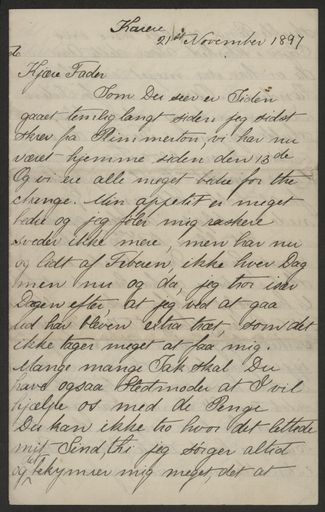 Karere
21st November 1897
Kjære Fader
Som Du seer er Tiden
gaaet temlig langt siden jeg sidst
skrev fra Rimmerton, vi har nu
været hjemme siden den 13de
Og vi ere alle meget bedre for the
change. Min appetit er meget
bedre og jeg föler mig raskere
sveder ikke mere, men har nu
og lidt af Feberen, ikke hver Dag
men nu og da, jeg tror især
Dagen efter at jeg ved at gaa
ud har bleven extra træt, som det
ikke tager meget at faa mig.
Mange mange Tak skal Du
have ogsaa Stedmoder at I vil
hjælpe os med de Penge
Du kan ikke tro hvor det lettede
mit Sind, thi jeg sörger altid
og bekymrer mig meget, det at